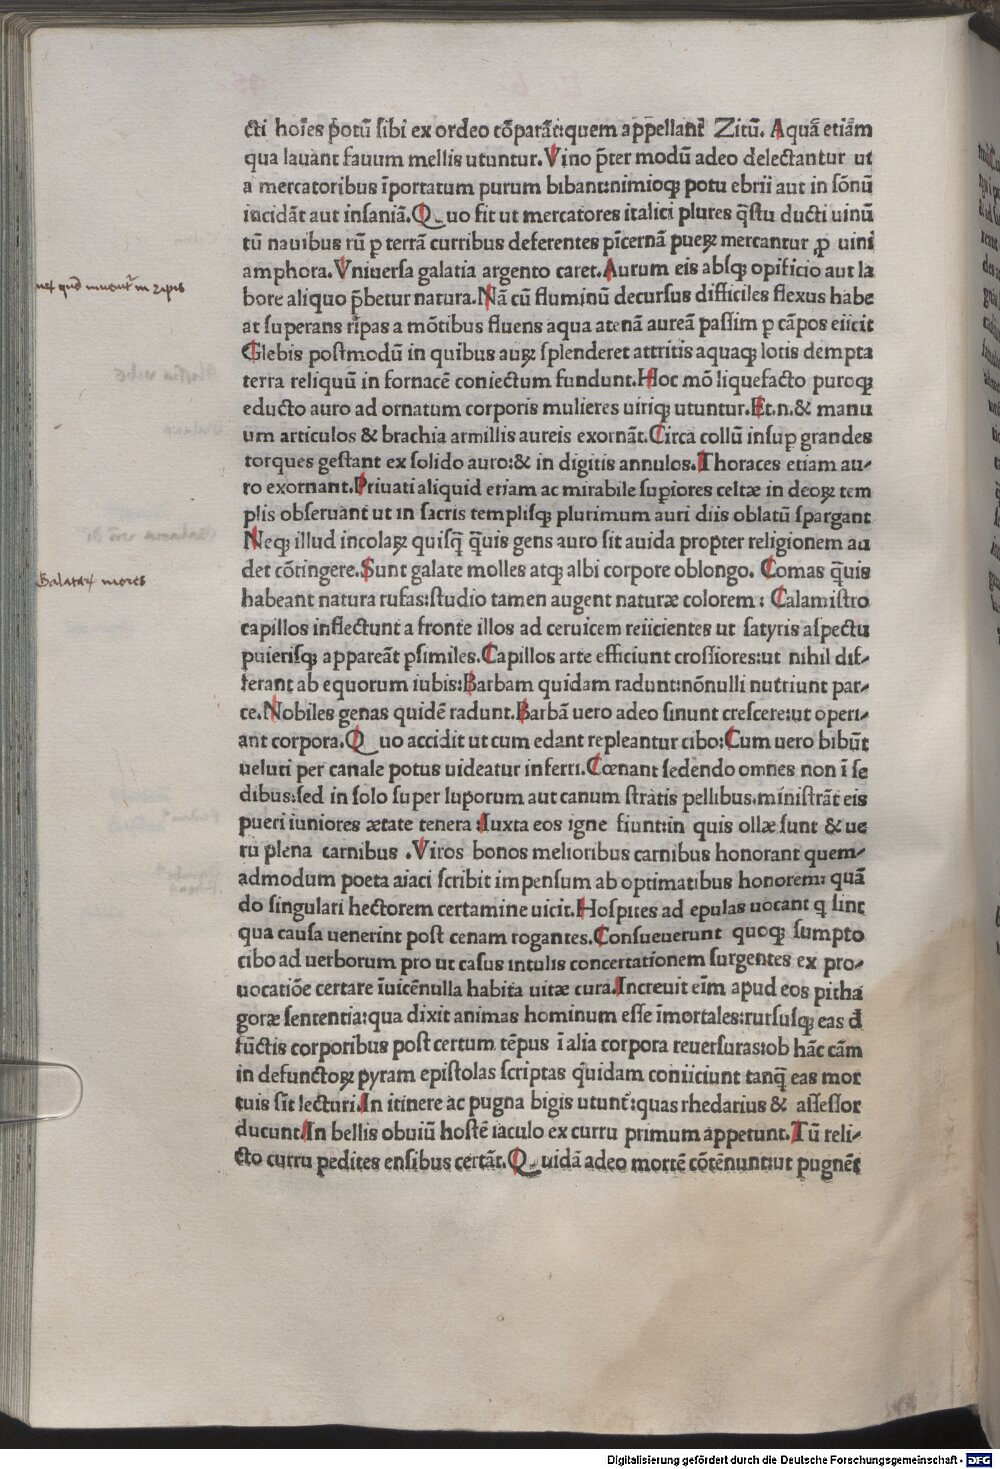 cti hoīes potū sibi ex ordeo cōparāt:quem appellant̄ Zitū. Aquā etiām
qua lauant fauum mellis utuntur. Vino p̄ter modū adeo delectantur ut
a mercatoribus īportatum purum bibant:nimioqꝫ potu ebrii aut in sōnū
incidāt aut insaniā. Quo fit ut mercatores italici plures q̄stu ducti uinū
tū nauibus tū ꝑ terrā curribus deferentes pīcernā pueꝝ mercantur ꝓ uini
amphora. Vniuersa galatia argento caret. Aurum eis absqꝫ opificio aut la
bore aliquo p̄betur natura. Nā cū fluminū decursus difficiles flexus habe
at superans rīpas a mōtibus fluens aqua atenā aureā passim ꝑ cāpos eiicit
Glebis postmodū in quibus auꝝ splenderet attritis aquaqꝫ lotis dempta
terra reliquū in fornacē coniectum fundunt. Hoc mō liquefacto puroqꝫ
educto auro ad ornatum corporis mulieres uiriqꝫ utuntur. Et.n.& manu
um articulos & brachia armillis aureis exornāt. Circa collū insuꝑ grandes
torques gestant ex solido auro:& in digitis annulos. Thoraces etiam au-
ro exornant. Priuati aliquid etiam ac mirabile suꝑiores celtæ in deoꝝ tem
plis obseruant ut in sacris templisqꝫ plurimum auri diis oblatū spargant
Neqꝫ illud incolaꝝ quisq̄ q̄uis gens auro sit auida propter religionem au
det cōtingere. Sunt galate molles atqꝫ albi corpore oblongo. Comas q̄uis
habeant natura rufas:studio tamen augent naturæ colorem: Calamistro
capillos inflectunt a fronte illos ad ceruicem reiicientes ut satyris aspectu
puerisqꝫ appareāt ꝑsimiles. Capillos arte efficiunt crossiores:ut nihil dif-
ferant ab equorum iubis: Barbam quidam radunt:nōnulli nutriunt par-
ce. Nobiles genas quidē radunt. Barbā uero adeo sinunt crescere:ut operi-
ant corpora. Quo accidit ut cum edant repleantur cibo: Cum uero bibūt
ueluti per canale potus uideatur inferri. Cœnant sedendo omnes non ī se
dibus:sed in solo super luporum aut canum stratis pellibus.ministrāt eis
pueri iuniores ætate tenera: Iuxta eos igne fiunt:in quis ollæ sunt & ue
ru plena carnibus. Viros bonos melioribus carnibus honorant quem-
admodum poeta aiaci scribit impensum ab optimatibus honorem: quā
do singulari hectorem certamine uicit. Hospites ad epulas uocant q sint
qua causa uenerint post cenam rogantes. Consueuerunt quoqꝫ sumpto
cibo ad uerborum pro ut casus intulis concertationem surgentes ex pro-
uocatiōe certare īuicē nulla habita uitæ cura. Increuit eīm apud eos pitha
goræ sententia:qua dixit animas hominum esse īmortales:rursusqꝫ eas d̄
fūctis corporibus post certum tēpus ī alia corpora reuersuras:ob hāc cām
in defunctoꝝ pyram epistolas scriptas q̄uidam coniiciunt tanq̄ eas mor
tuis sīt lecturi. In itinere ac pugna bigis utunt̄:quas rhedarius & assessor
ducunt. In bellis obuiū hostē iaculo ex curru primum appetunt. Tū reli-
cto curru pedites ensibus certāt. Quidā adeo mortē cōtēnunt:ut pugnēt
Galatarꝝ mores
Digitalisierung gefördert durch die Deutsche Forschungsgemeinschaft - DFG